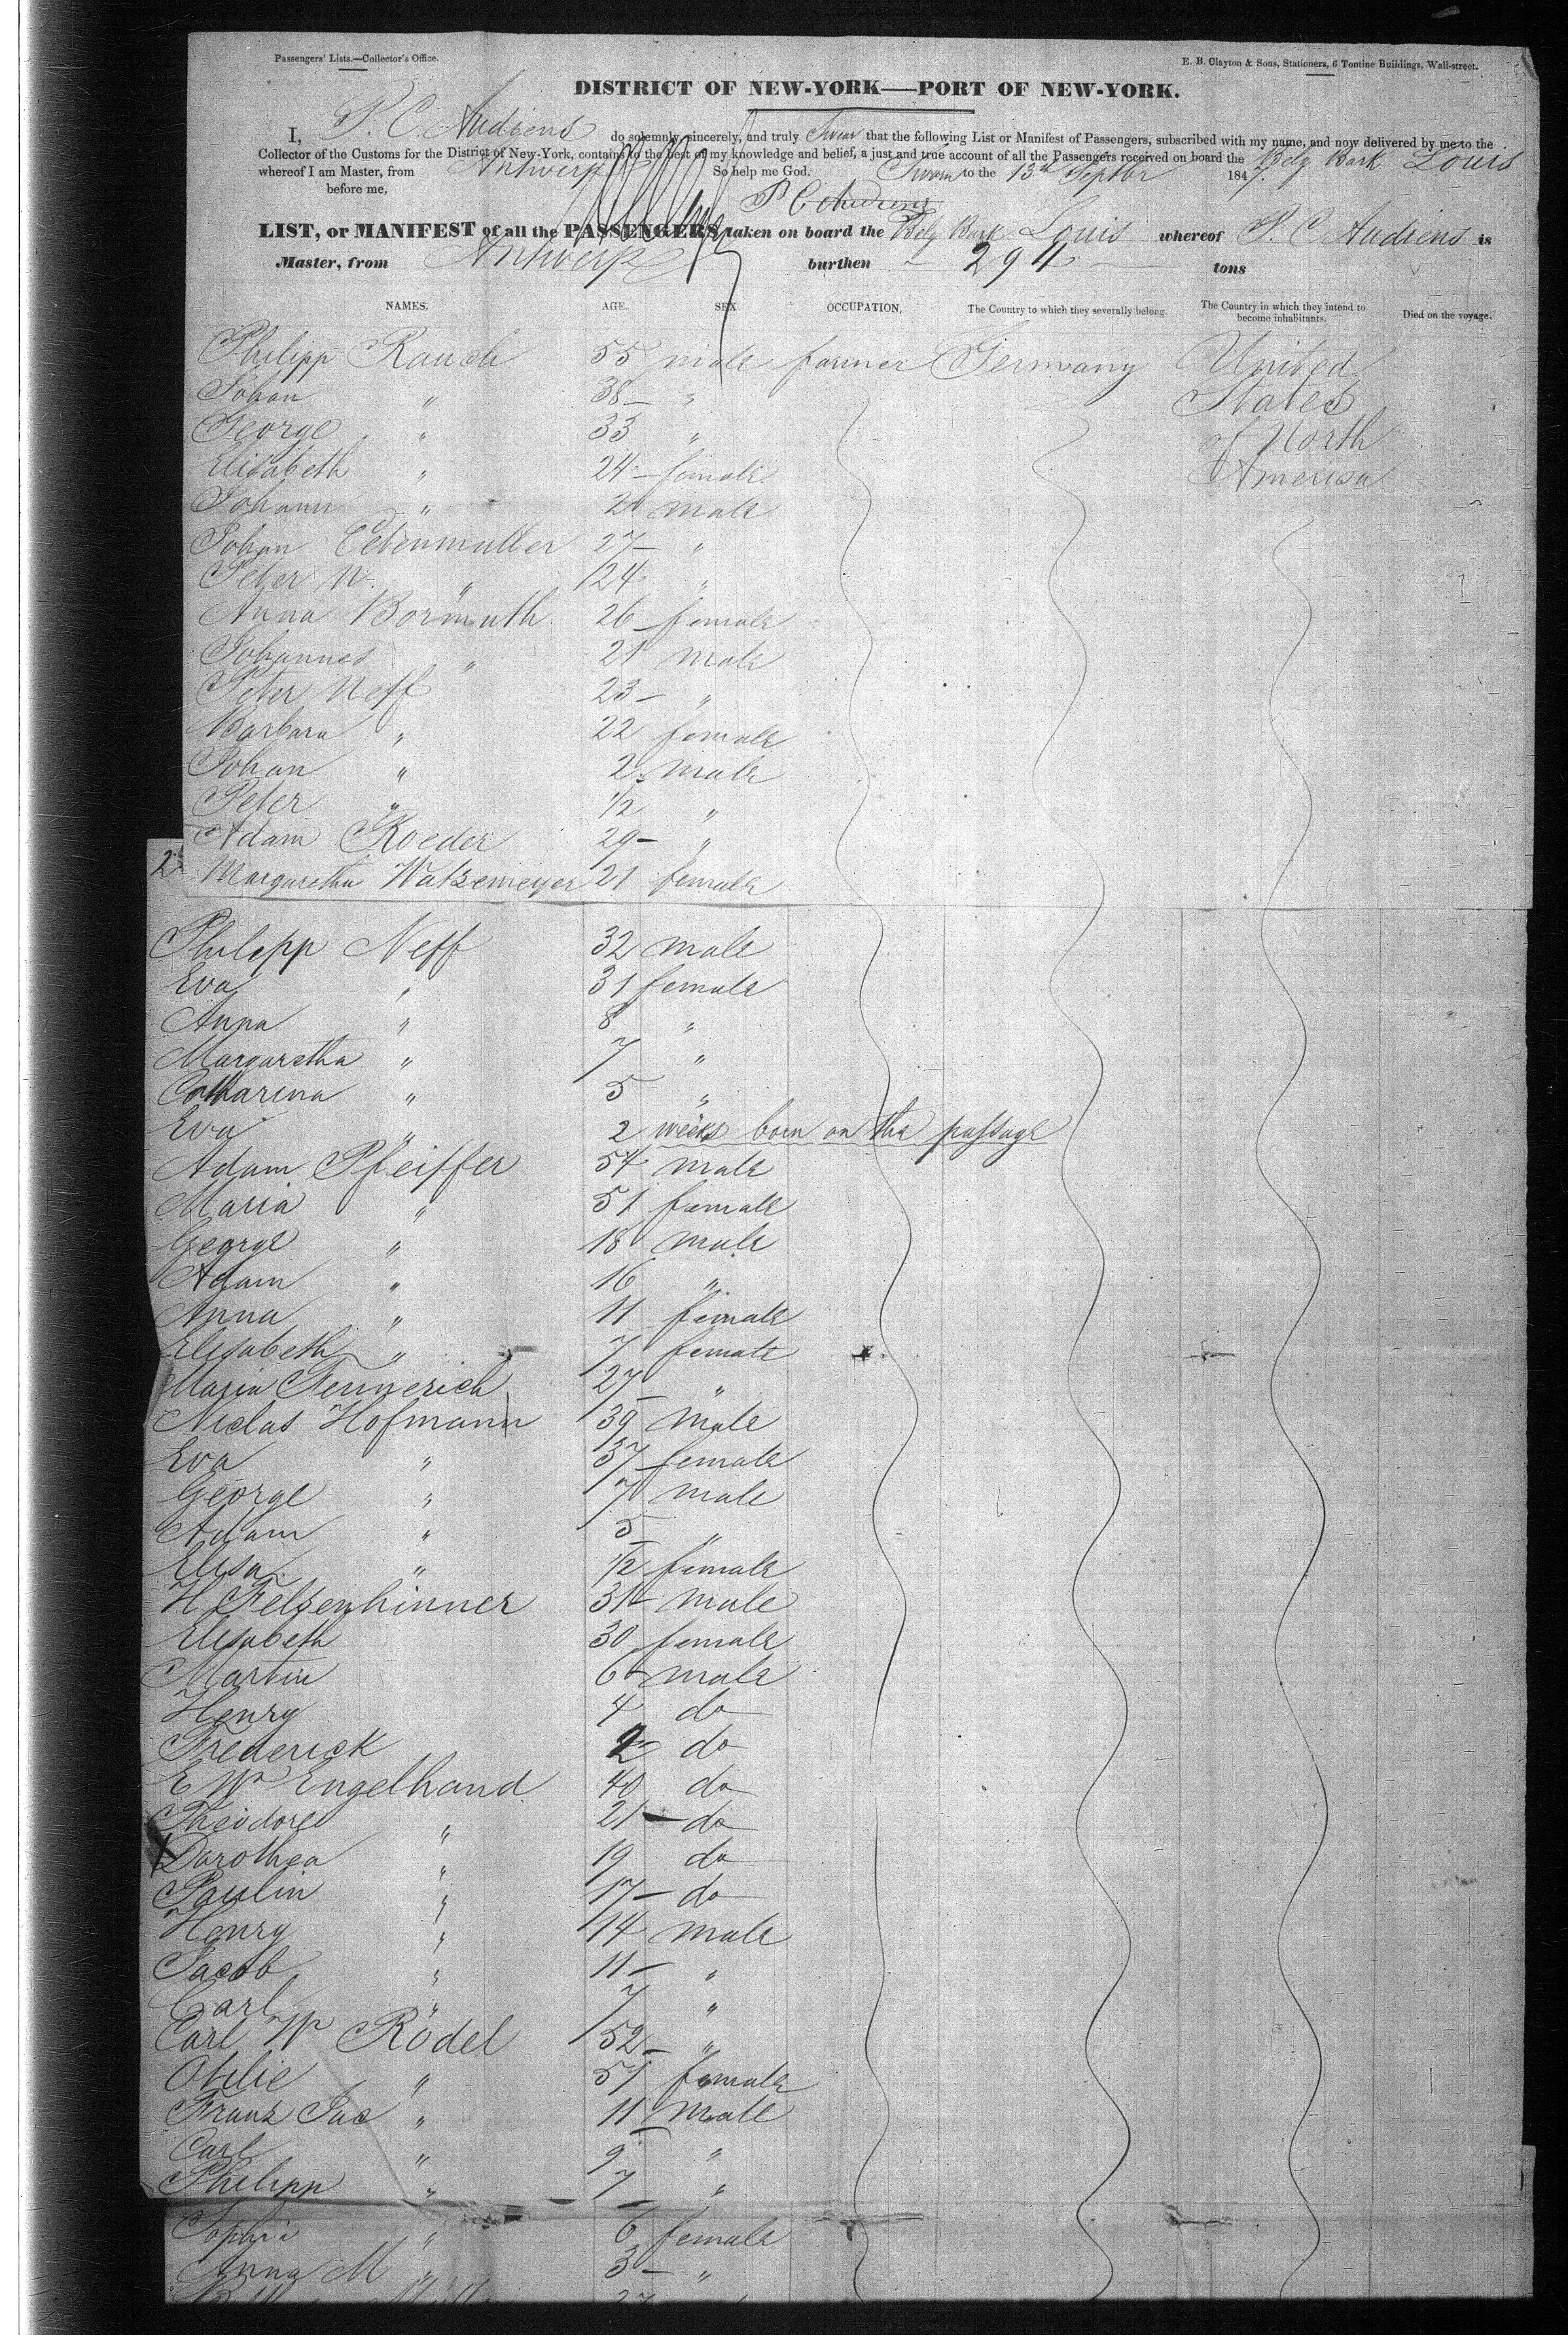 Passengers' Lists.—Collector's Office.
E. B. Clayton & Sons, Stationers, 6 Tontine Buildings, Wall-street.
DISTRICT OF NEW-YORK—PORT OF NEW-YORK.
I, P. C. Audiens do solemnly, sincerely, and truly Swear that the following List or Manifest of Passengers, subscribed with my name, and now delivered by me to the
Collector of the Customs for the District of New-York, contains to the best of my knowledge and belief, a just and true account of all the Passengers received on board the Belg Bark Louis
whereof I am Master, from Antwerp So help me God.
Sworn to the 13th Septbr 1847.
before me,
P C Audiens
LIST, or MANIFEST of all the PASSENGERS taken on board the Belg Bark Louis whereof P. C Audiens is
Master, from Antwerp burthen 294 tons
NAMES. AGE. SEX. OCCUPATION, The Country to which they severally belong. The Country in which they intend to become inhabitants. Died on the voyage.
Philipp Rauch 55 male farmer Germany United
Johan " 38 " States
George " 33 " of North
Elisabeth " 24 female America
Johann " 2 male
Johan 27 "
Peter N. " 24 "
Anna Bormuth 26 female
Johannes " 21 male
Peter Neff 23 "
Barbara " 22 female
Johan " 2 male
Peter " 1/2 "
Adam Roeder 29 "
2 Margaretha Watzemeyer 21 female
Philipp Neff 32 male
Eva " 31 female
Anna " 8 "
Margaretha " 7 "
Catharina " 5 "
Eva " 2 weeks born on the passage
Adam Pfeiffer 54 male
Maria " 51 female
George " 18 male
Adam " 16 "
Anna " 11 female
Elisabeth " 7 female
Maria Fennerich 27 "
Niclas Hofmann 39 male
Eva " 37 female
George " 7 male
Adam " 5 "
Elisa " 1/2 female
H Felsenhinner 31 male
Elisabeth 30 female
Martin 6 male
Henry 4 do
Frederick 2 do
E Wm Engelhand 40 do
Theodore " 21 do
X Dorothea " 19 do
Paulin " 17 do
Henry " 14 male
Jacob " 11 "
Carl " 7 "
Carl Wm Rödel 52 "
Otilie " 51 female
Franz Jac " 11 male
Carl " 9 "
Philipp " 7 "
Sophia " 6 female
Anna M " 3 "